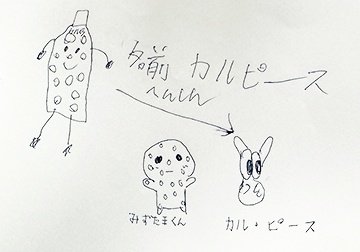 名前 カルピース
へんしん
みずたまくん
カル・ピース